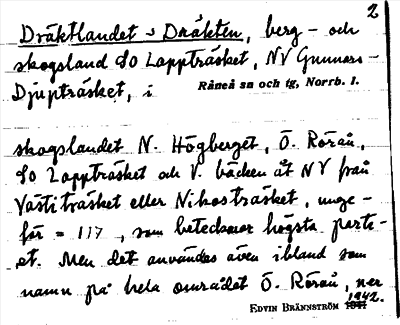 2
Dräktlandet = Dräkten, berg- och
skogsland SO Lappträsket, NV Gunnars-
Djupträsket, i Råneå sn och tg, Norrb. l.
skogslandet N. Högberget, Ö. Röråu,
SO Lappträsket och V. bäcken åt NV från
Västiträsket eller Nikostråsket, unge-
fär = 117, som betecknar högsta parti-
et. Men det användes även ibland som
namn på hela området Ö. Röråu, ner
EDVIN BRÄNNSTRÖM 1942.